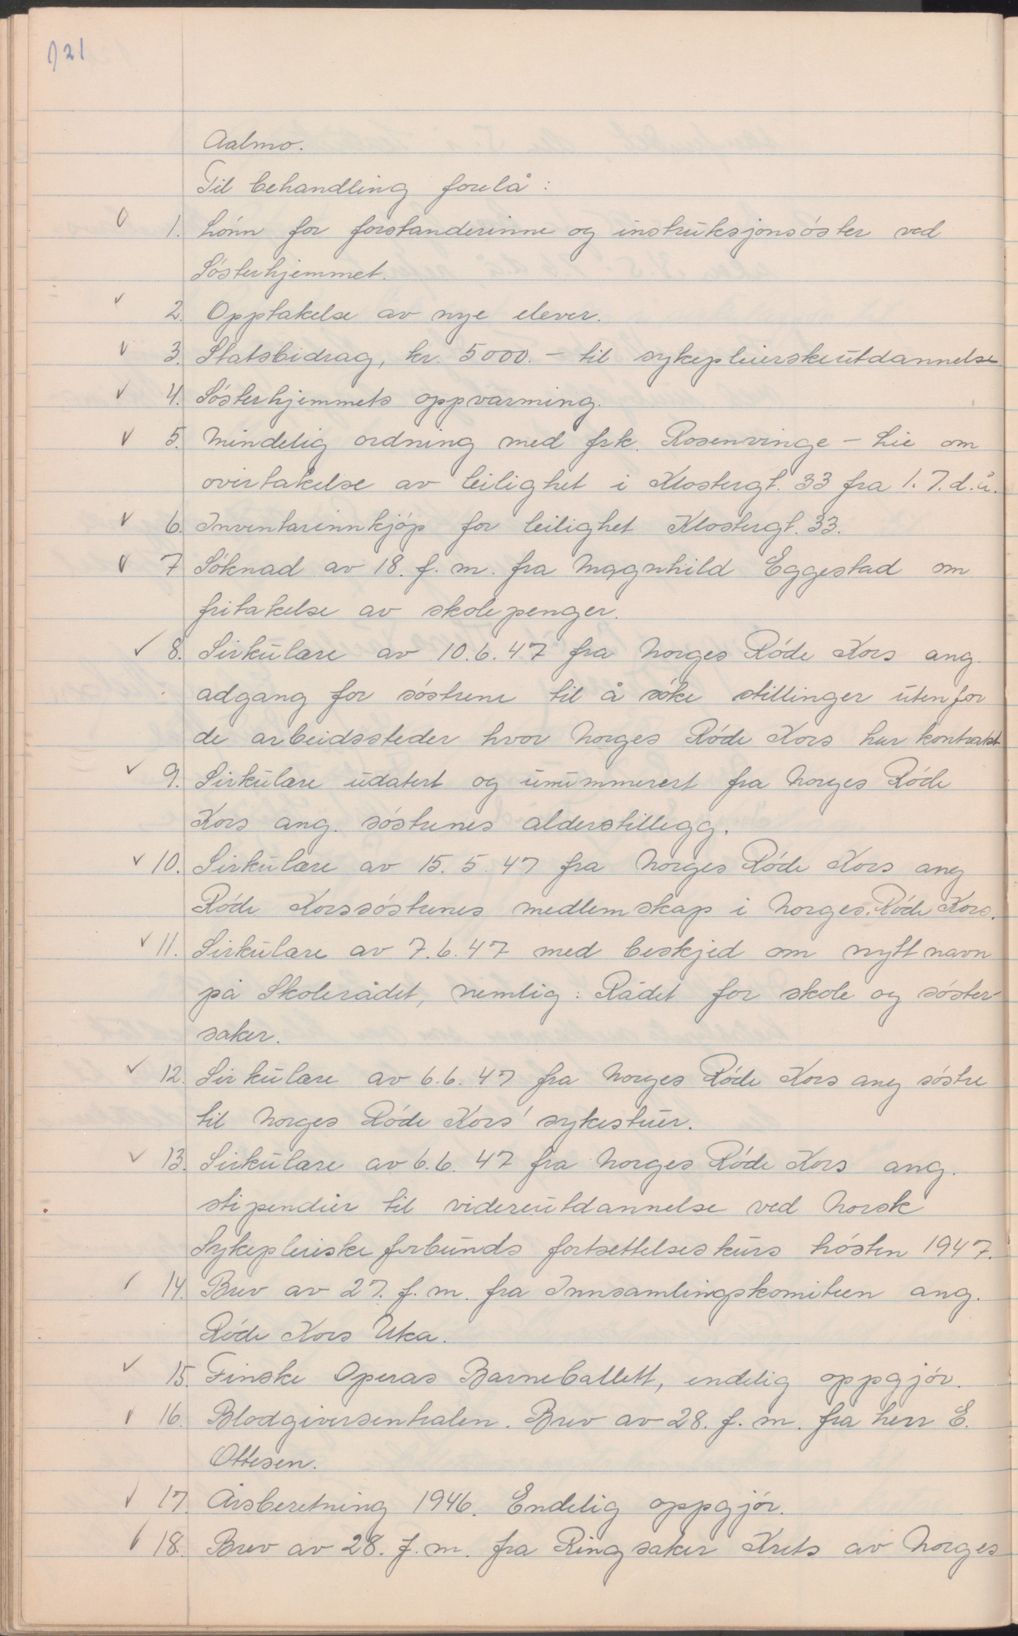 121
Aalmo.
Til behandling forelå:
1. Lónn for forstanderinne og instruksjonsóster ved
Sósterhjemmet.
2. Opptakelse av nye elever.
3. Statsbidrag, kr. 5000.- til sykepleierskeutdannelse
4. Sósterhjemmets oppvarming.
5. Mindelig ordning med frk. Rosenvinge - Lie om
overtakelse av leilighet i Klostergt. 33 fra 1.7.d.å.
6. Inventarinnkjóp for leilighet Klostergt. 33.
7 Sóknad av 18. f. m. fra Magnhild Eggestad om
fritakelse av skolepenger.
8. Sirkulære av 10.6.47 fra Norges Róde Kors ang.
adgang for sóstrene til å sóke stillinger utenfor
de arbeidssteder hvor Norges Róde Kors har kontrakt
9. Sirkulære udatert og unummerert fra Norges Róde
Kors ang. sóstrenes alderstillegg.
10. Sirkulære av 15.5.47 fra Norges Róde Kors ang
Róde Korssóstrenes medlemskap i Norges Róde Kors.
11. Sirkulære av 7.6.47 med beskjed om nytt navn
på Skolerådet, nemlig: Rådet for skole og sóster-
saker.
12. Sirkulære av 6.6.47 fra Norges Róde Kors ang sóstre
til Norges Róde Kors' sykestuer.
13. Sirkulære av 6.6.47 fra Norges Róde Kors ang.
stipendier til videreutdannelse ved Norsk
Sykepleierskeforbunds fortsettelseskurs hósten 1947.
14. Brev av 27. f. m. fra Innsamlingskomiteen ang.
Róde Kors Uka.
15. Finske Operas Barneballett, endelig oppgjór.
16. Blodgiversentralen. Brev av 28. f. m. fra herr E.
Ottesen.
17. Årsberetning 1946. Endelig oppgjór.
18. Brev av 28. f. m. fra Ringsaker Krets av Norges